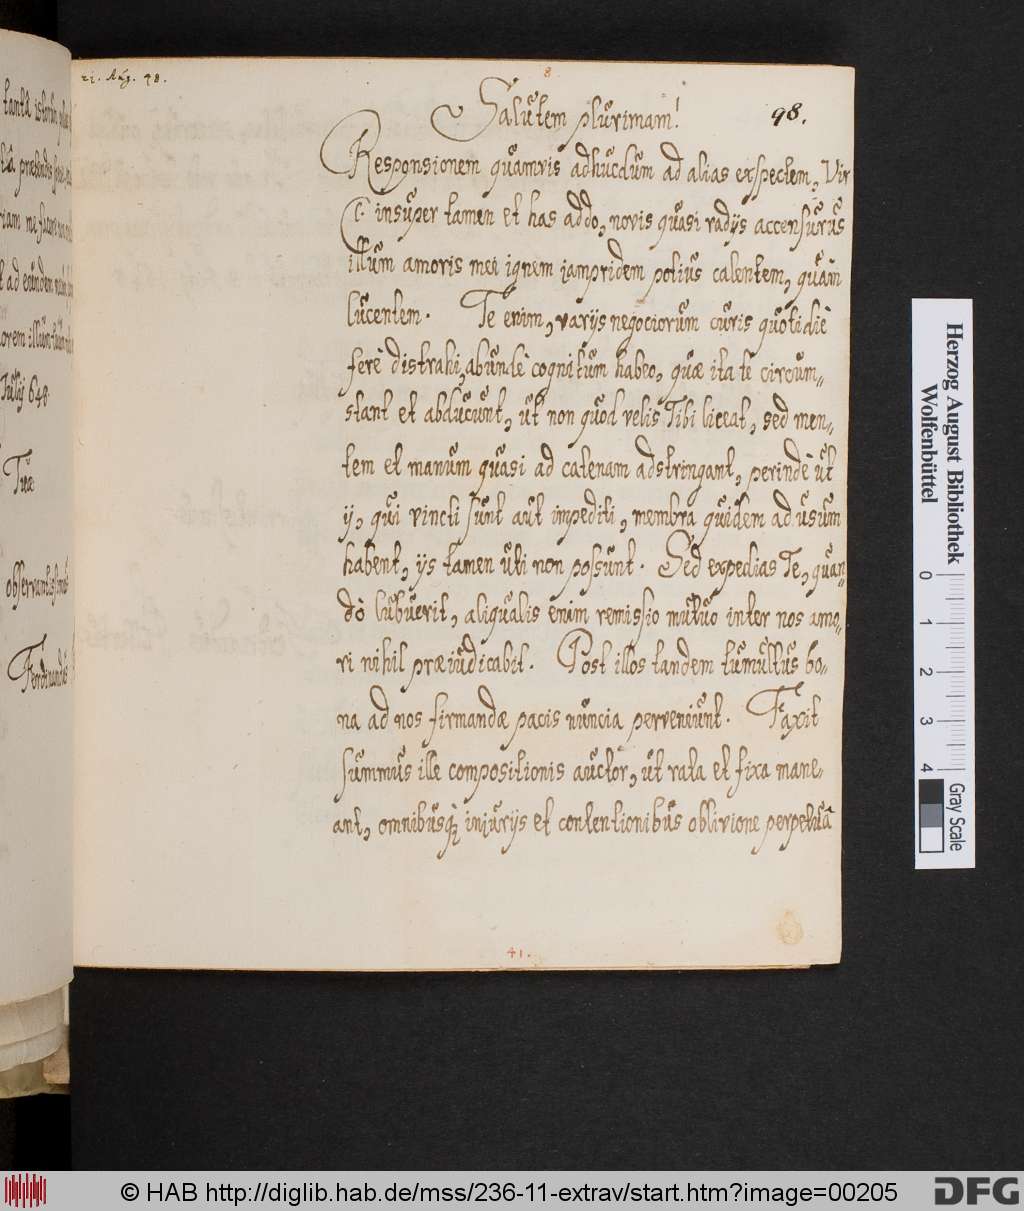 tanta istorum
8.
Aug. 48.
Salutem plurimam!
98.
Responsionem quamvis adhucdum ad alias exspectem, Vir
C. insuper tamen et has addo, novis quasi radijs accensurus
illum amoris mei ignem jampridem potius calentem, quàm
lucentem. Te enim, varijs negociorum curis quotidiè
ferè distrahi, abundè cognitum habeo, quæ ita te circum„
stant et abducunt, ut non quod velis Tibi liceat, sed men„
tem et manum quasi ad catenam adstringant, perindè ut
ij, qui vincti sunt aut impediti, membra quidem ad usum
habent, ijs tamen uti non possunt. Sed expedias Te, quan„
dò lubuerit, aliqualis enim remissio mutuo inter nos amo„
ri nihil præiudicabit. Post illos tandem tumultus bo„
na ad nos firmandæ pacis nuncia perveniunt. Faxit
summus ille compositionis auctor, ut rata et fixa mane„
ant, omnibusq; injurijs et contentionibus oblivione perpetuâ
41.
ad eundem
Julij 648
Tuæ
observantissimus
Ferdinandus
Herzog August Bibliothek
Wolfenbüttel
0 1 2 3 4
Gray Scale
© HAB http://diglib.hab.de/mss/236-11-extrav/start.htm?image=00205
DFG